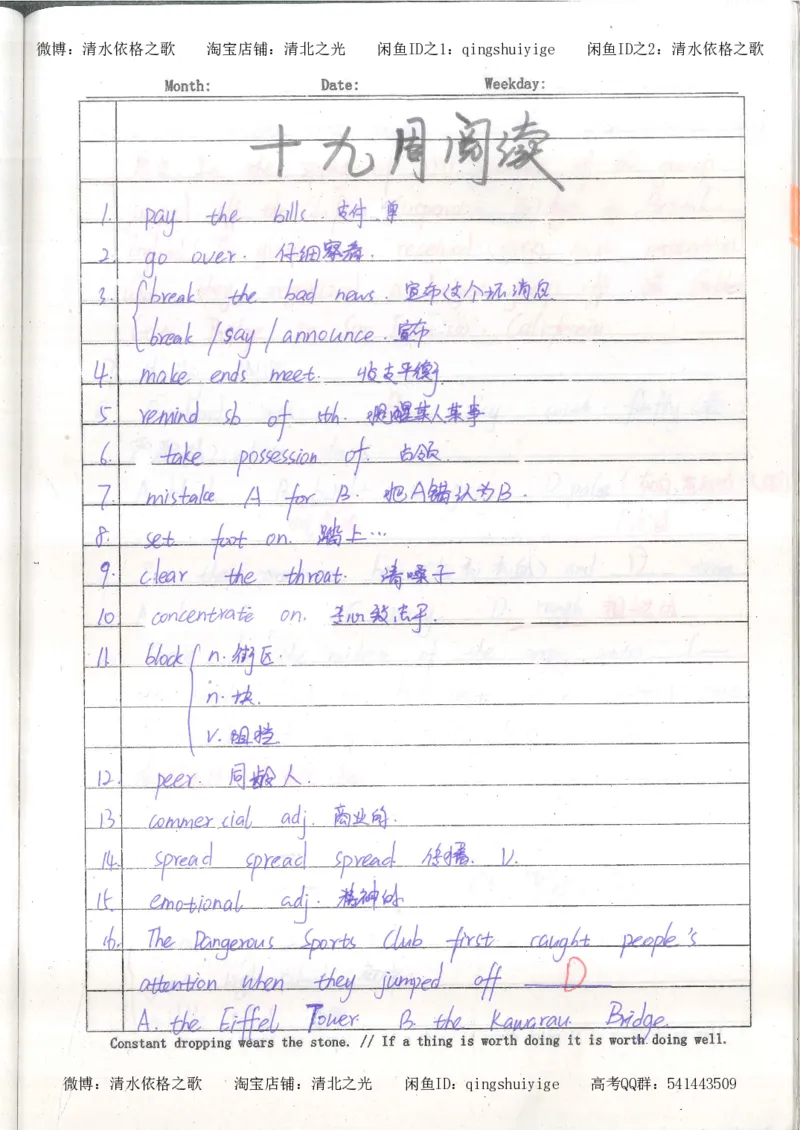 微博：清水依格之歌 淘宝店铺：清北之光 闲鱼ID之1：qingshuiyige 闲鱼ID之2：清水依格之歌
Month: Date: Weekday:
十九周阅读
1. pay the bills. 支付单
2. go over. 仔细察看.
3. break the bad news. 宣布这个坏消息
break / say / announce. 宣布
4. make ends meet. 收支平衡
5. remind sb of sth. 提醒某人某事
6. take possession of. 占领.
7. mistake A for B. 把A错认为B.
8. set foot on. 踏上…
9. clear the throat. 清嗓子
10 concentrate on. 专心致志于.
11. block n. 街区.
n. 块.
v. 阻挡
12. peer. 同龄人.
13 commercial adj. 商业的.
14. spread spread spread 传播. v.
15. emotional adj. 精神的
16. The Dangerous Sports Club first caught people's
attention when they jumped off D
A. the Eiffel Tower. B. the Kawarau Bridge.
Constant dropping wears the stone. // If a thing is worth doing it is worth doing well.
微博：清水依格之歌 淘宝店铺：清北之光 闲鱼ID：qingshuiyige 高考QQ群：541443509